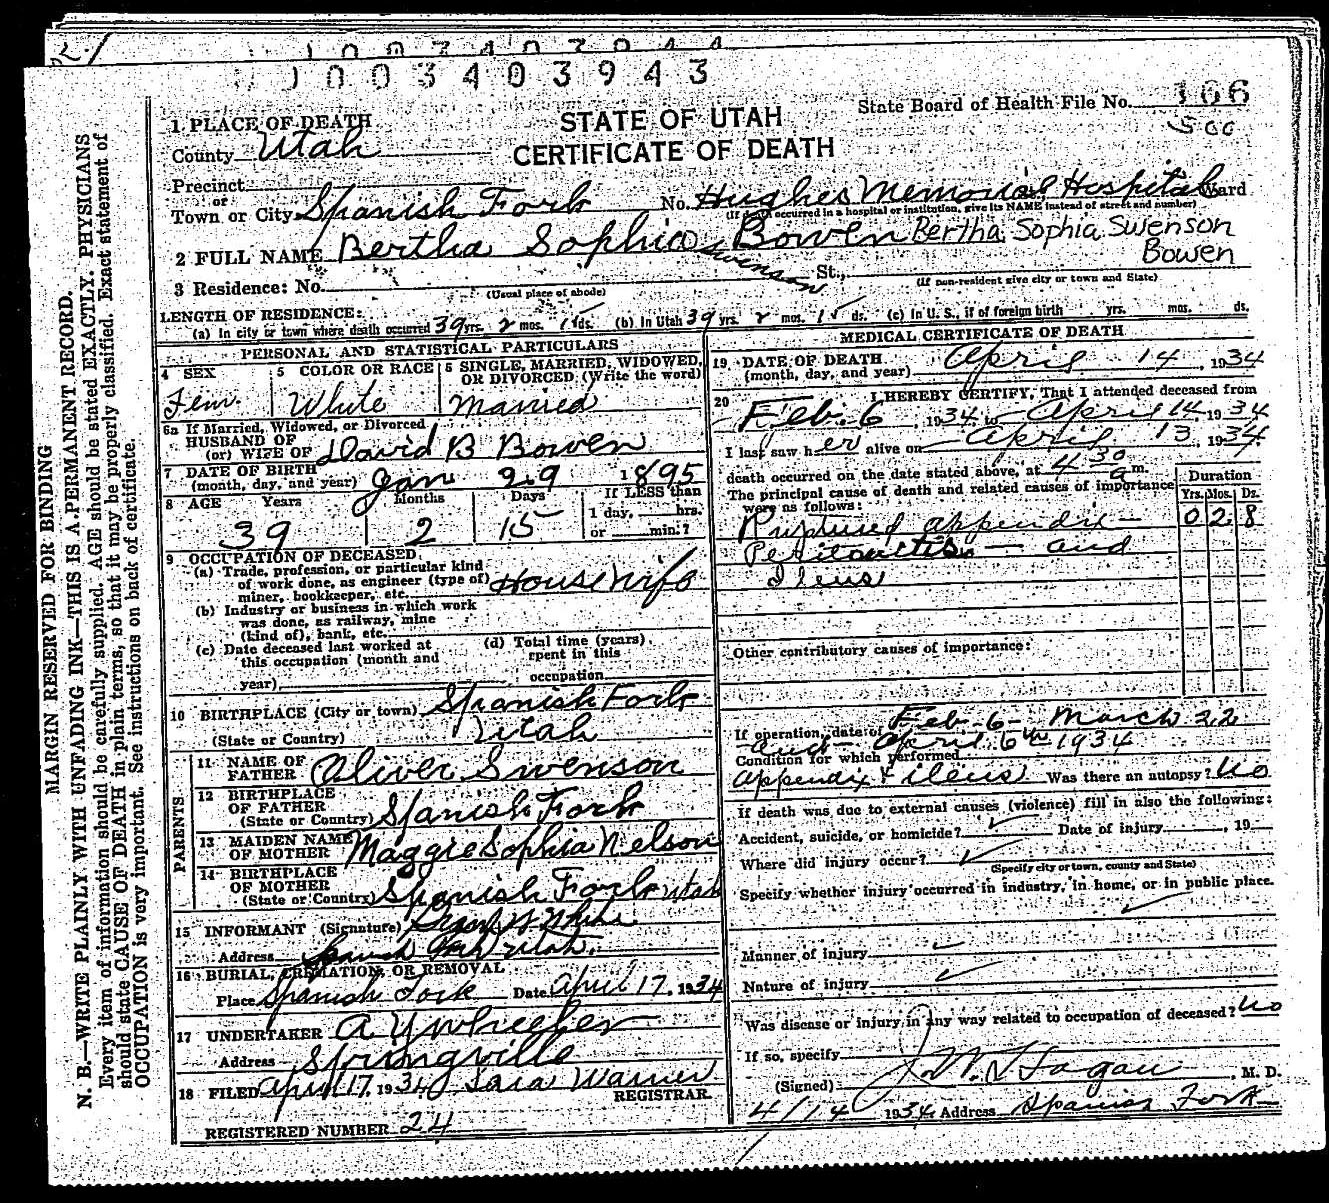 1003403944
1003403943
State Board of Health File No. 166
500
STATE OF UTAH
CERTIFICATE OF DEATH
1 PLACE OF DEATH
County Utah
Precinct
or
Town or City Spanish Fork No. Hughes Memorial Hospital Ward
(If death occurred in a hospital or institution, give its NAME instead of street and number)
2 FULL NAME Bertha Sophia Swenson Bowen Bertha Sophia Swenson
Bowen
3 Residence: No. St.,
(Usual place of abode) (If non-resident give city or town and State)
LENGTH OF RESIDENCE:
(a) In city or town where death occurred 39 yrs. 2 mos. 15 ds. (b) In Utah 39 yrs. 2 mos. 15 ds. (c) In U. S., if of foreign birth yrs. mos. ds.
PERSONAL AND STATISTICAL PARTICULARS
4 SEX
Fem.
5 COLOR OR RACE
White
5 SINGLE, MARRIED, WIDOWED,
OR DIVORCED (Write the word)
Married
6a If Married, Widowed, or Divorced
HUSBAND OF
(or) WIFE OF David B Bowen
7 DATE OF BIRTH
(month, day, and year) Jan 29 1895
8 AGE Years Months Days If LESS than
1 day, hrs.
39 2 15 or min.?
9 OCCUPATION OF DECEASED
(a) Trade, profession, or particular kind
of work done, as engineer (type of)
miner, bookkeeper, etc. Housewife
(b) Industry or business in which work
was done, as railway, mine
(kind of), bank, etc.
(c) Date deceased last worked at
this occupation (month and
year)
(d) Total time (years)
spent in this
occupation
10 BIRTHPLACE (City or town) Spanish Fork
(State or Country) Utah
PARENTS
11 NAME OF
FATHER Oliver Swenson
12 BIRTHPLACE
OF FATHER
(State or Country) Spanish Fork
13 MAIDEN NAME
OF MOTHER Maggie Sophia Nelson
14 BIRTHPLACE
OF MOTHER
(State or Country) Spanish Fork Utah
15 INFORMANT (Signature)
Address Spanish Fork Utah.
16 BURIAL, CREMATION, OR REMOVAL
Place Spanish Fork Date April 17, 1934
17 UNDERTAKER A Y Wheeler
Address Springville
18 FILED April 17, 1934 Sara Warner
REGISTRAR.
REGISTERED NUMBER 24
MEDICAL CERTIFICATE OF DEATH
19 DATE OF DEATH
(month, day, and year) April 14, 1934
20 I HEREBY CERTIFY, That I attended deceased from
Feb. 6, 1934 to April 14 1934
I last saw her alive on April 13, 1934
death occurred on the date stated above, at 4 30 a m.
The principal cause of death and related causes of importance
were as follows:
Duration
Yrs. Mos. Ds.
Ruptured appendix 0 2 8
Peritonitis and
Ileus
Other contributory causes of importance:
If operation, date of Feb-6- March 22
and April 6th 1934
Condition for which performed
appendix & ileus Was there an autopsy? No
If death was due to external causes (violence) fill in also the following:
Accident, suicide, or homicide? Date of injury , 19
Where did injury occur?
(Specify city or town, county and State)
Specify whether injury occurred in industry, in home, or in public place.
Manner of injury
Nature of injury
Was disease or injury in any way related to occupation of deceased? No
If so, specify
(Signed) Hagan, M. D.
4/14 1934 Address Spanish Fork
MARGIN RESERVED FOR BINDING
N. B.—WRITE PLAINLY, WITH UNFADING INK—THIS IS A PERMANENT RECORD.
Every item of information should be carefully supplied. AGE should be stated EXACTLY. PHYSICIANS
should state CAUSE OF DEATH in plain terms, so that it may be properly classified. Exact statement of
OCCUPATION is very important. See instructions on back of certificate.